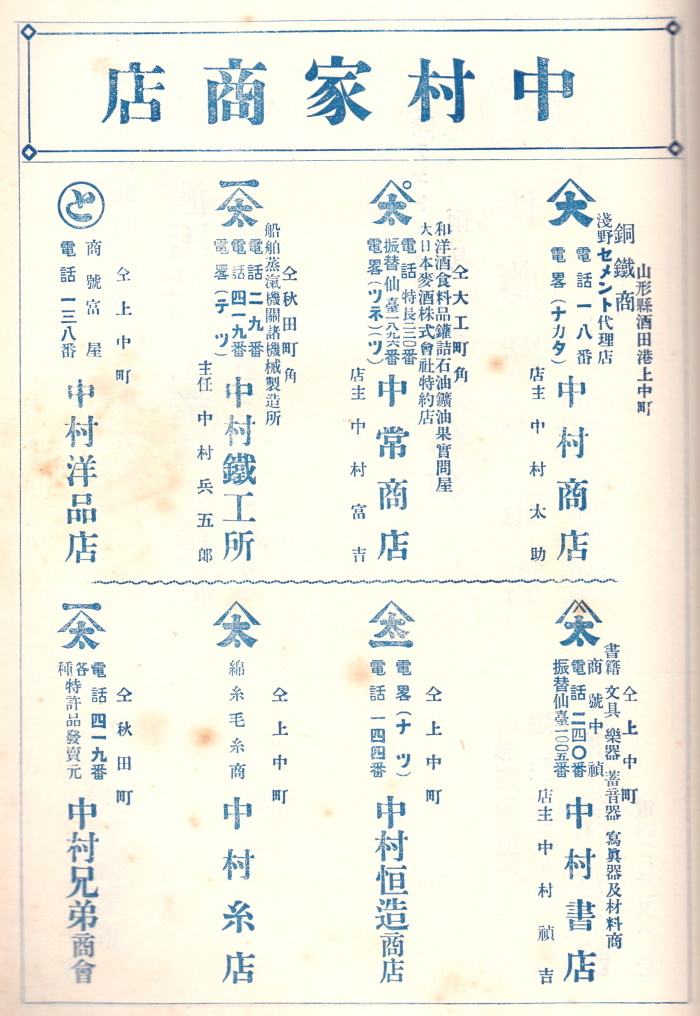 中村家商店
山形縣酒田港上中町
銅鐵商
淺野セメント代理店
電話一八番
電畧(ナカタ)
中村商店
店主 中村太助
仝大工町角
和洋酒食料品罐詰石油鑛油果實問屋
大日本麥酒株式會社特約店
電話特長二三〇番
振替仙臺一八九六番
電畧(ツネ)(ツ)
中常商店
店主 中村富吉
仝秋田町角
船舶蒸氣機關諸機械製造所
電話二九番
電話四一九番
電畧(テツ)
中村鐵工所
主任 中村兵五郎
仝上中町
商號富屋
電話一三八番
中村洋品店
仝上中町
書籍 文具 樂器 蓄音器 寫眞器及材料商
商號中禎
電話二四〇番
振替仙臺一〇〇五番
中村書店
店主 中村禎吉
仝上中町
電畧(ナツ)
電話一四四番
中村恒造商店
仝上中町
綿糸毛糸商
中村糸店
仝秋田町
電話四一九番
各種特許品發賣元
中村兄弟商會